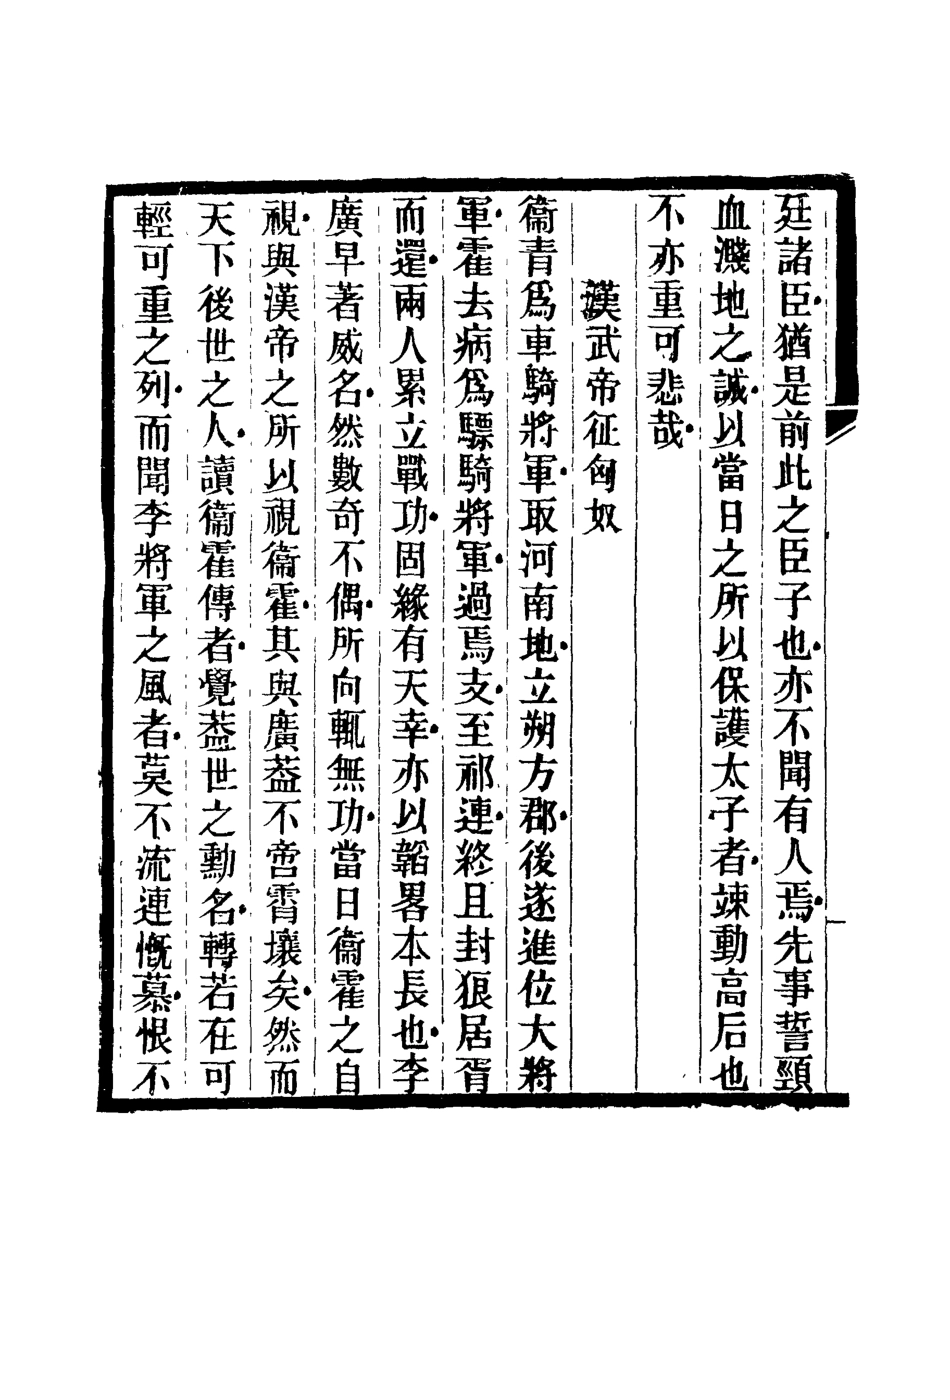 廷諸臣猶是前此之臣子也亦不聞有人焉先事誓頸
血濺地之誠以當日之所以保護太子者竦動高后也
不亦重可悲哉
漢武帝征匈奴
衞青爲車騎將軍取河南地立朔方郡後遂進位大將
軍霍去病爲驃騎將軍過焉支至祁連終且封狼居胥
而還兩人累立戰功固緣有天幸亦以韜畧本長也李
廣早著威名然數奇不偶所向輒無功當日衞霍之自
視與漢帝之所以視衞霍其與廣葢不啻霄壤矣然而
天下後世之人讀衞霍傳者覺葢世之勳名轉若在可
輕可重之列而聞李將軍之風者莫不流連慨慕恨不